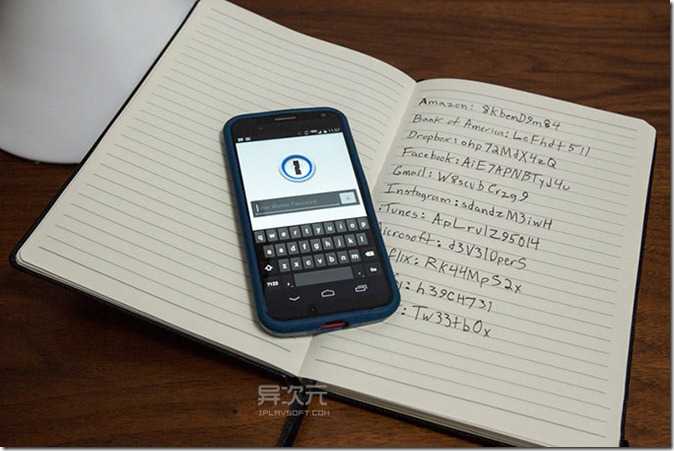 Amazon: 8KbenD9m84
Bank of America: LcFhdt511
Dropbox: ohp72MdX4zQ
Facebook: AiE7APNBTyJ4u
Gmail: W8scvbCrzg9
Instagram: sdandzM3iwH
Tunes: ApLrvlZ95014
icrosoft: d3V3IOperS
flix: RK44MpS2x
: h39CH731
: Tw33tbOx
q w e r t y u i o p
a s d f g h j k l
z x c v b n m
异次元
IPLAYSOFT.COM